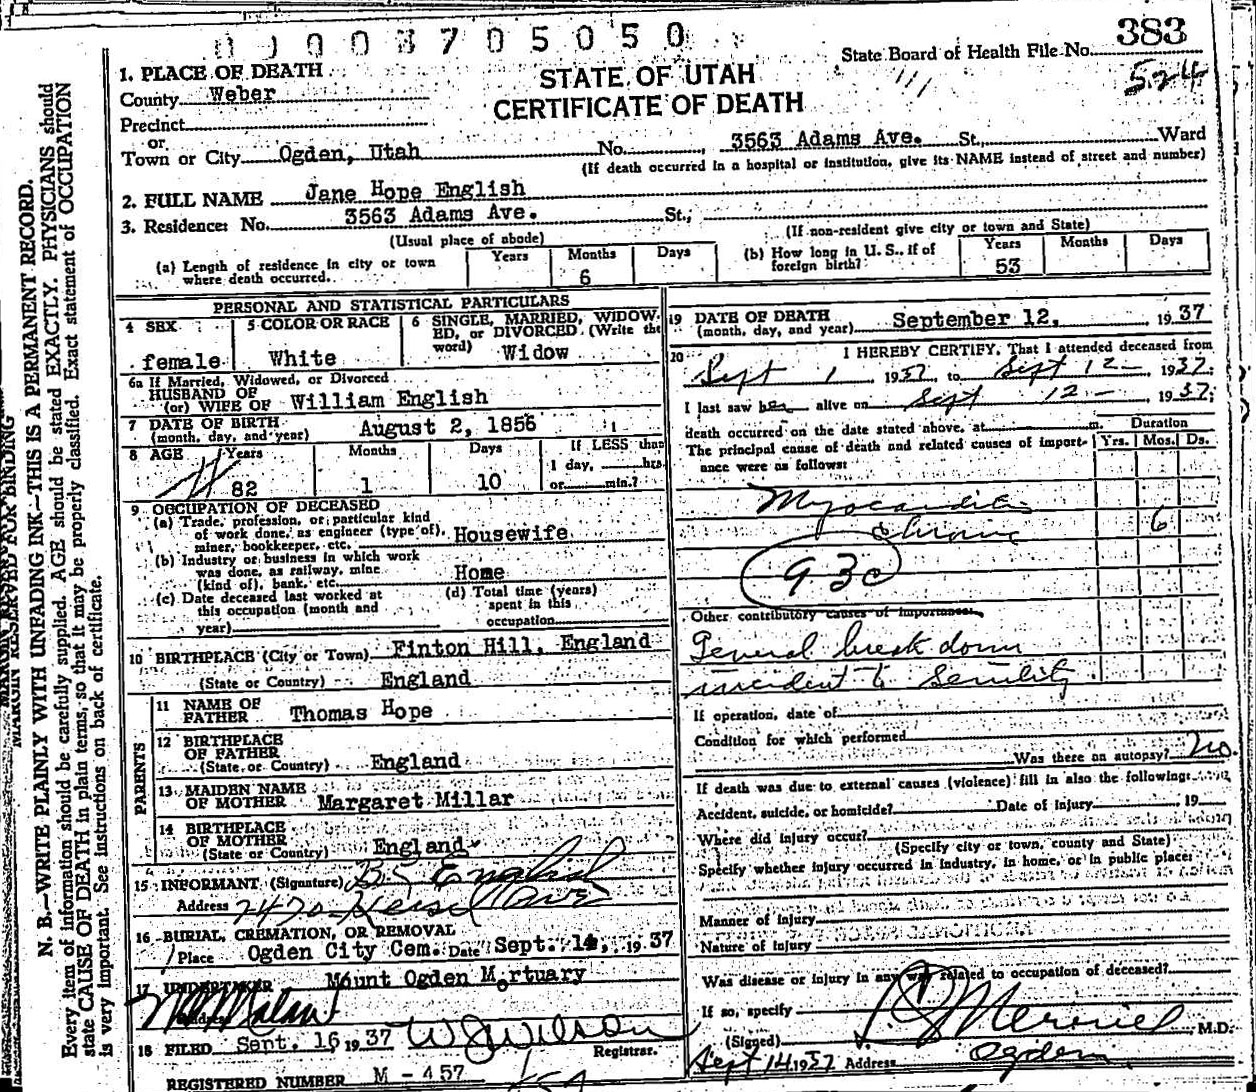 0 0 0 3 7 0 5 0 5 0
State Board of Health File No. 383
524
STATE OF UTAH
CERTIFICATE OF DEATH
1. PLACE OF DEATH
County Weber
Precinct
or
Town or City Ogden, Utah No. 3563 Adams Ave. St., Ward
(If death occurred in a hospital or institution, give its NAME instead of street and number)
2. FULL NAME Jane Hope English
3. Residence: No. 3563 Adams Ave. St.,
(Usual place of abode) (If non-resident give city or town and State)
(a) Length of residence in city or town where death occurred. Years Months 6 Days
(b) How long in U. S., if of foreign birth? Years 53 Months Days
PERSONAL AND STATISTICAL PARTICULARS
4 SEX female
5 COLOR OR RACE White
6 SINGLE, MARRIED, WIDOWED, or DIVORCED. (Write the word) Widow
6a If Married, Widowed, or Divorced
HUSBAND OF
(or) WIFE OF William English
7 DATE OF BIRTH
(month, day, and year) August 2, 1856
8 AGE Years 82 Months 1 Days 10 If LESS than
1 day, hrs.
or min.?
9 OCCUPATION OF DECEASED
(a) Trade, profession, or particular kind
of work done, as engineer (type of),
miner, bookkeeper, etc. Housewife
(b) Industry or business in which work
was done, as railway, mine
(kind of), bank, etc. Home
(c) Date deceased last worked at
this occupation (month and
year)
(d) Total time (years)
spent in this
occupation
10 BIRTHPLACE (City or Town) Finton Hill, England
(State or Country) England
PARENTS
11 NAME OF
FATHER Thomas Hope
12 BIRTHPLACE
OF FATHER
(State or Country) England
13 MAIDEN NAME
OF MOTHER Margaret Millar
14 BIRTHPLACE
OF MOTHER
(State or Country) England
15 INFORMANT (Signature) English
Address 2470 Ave
16 BURIAL, CREMATION, OR REMOVAL
Place Ogden City Cem. Date Sept. 14, 1937
17 UNDERTAKER Mount Ogden Mortuary
Address
18 FILED Sept. 16 1937 W J Wilson
Registrar.
REGISTERED NUMBER M - 457
19 DATE OF DEATH
(month, day, and year) September 12, 1937
20 I HEREBY CERTIFY, That I attended deceased from
Sept 1 1937 to Sept 12 1937;
I last saw her alive on Sept 12 1937;
death occurred on the date stated above, at m.
Duration
Yrs. Mos. Ds.
The principal cause of death and related causes of importance were as follows:
Myocarditis
chronic 6
93c
Other contributory causes of importance:
General break down
incident to Senility
If operation, date of
Condition for which performed
Was there an autopsy? No.
If death was due to external causes (violence) fill in also the following:
Accident, suicide, or homicide? Date of injury 19
Where did injury occur?
(Specify city or town, county and State)
Specify whether injury occurred in industry, in home, or in public place:
Manner of injury
Nature of injury
Was disease or injury in any way related to occupation of deceased?
If so, specify
(Signed) Merrill, M.D.
Sept 14, 1937 Address Ogden
MARGIN RESERVED FOR BINDING
N. B.—WRITE PLAINLY WITH UNFADING INK—THIS IS A PERMANENT RECORD.
Every item of information should be carefully supplied. AGE should be stated EXACTLY. PHYSICIANS should
state CAUSE OF DEATH in plain terms, so that it may be properly classified. Exact statement of OCCUPATION
is very important. See instructions on back of certificate.